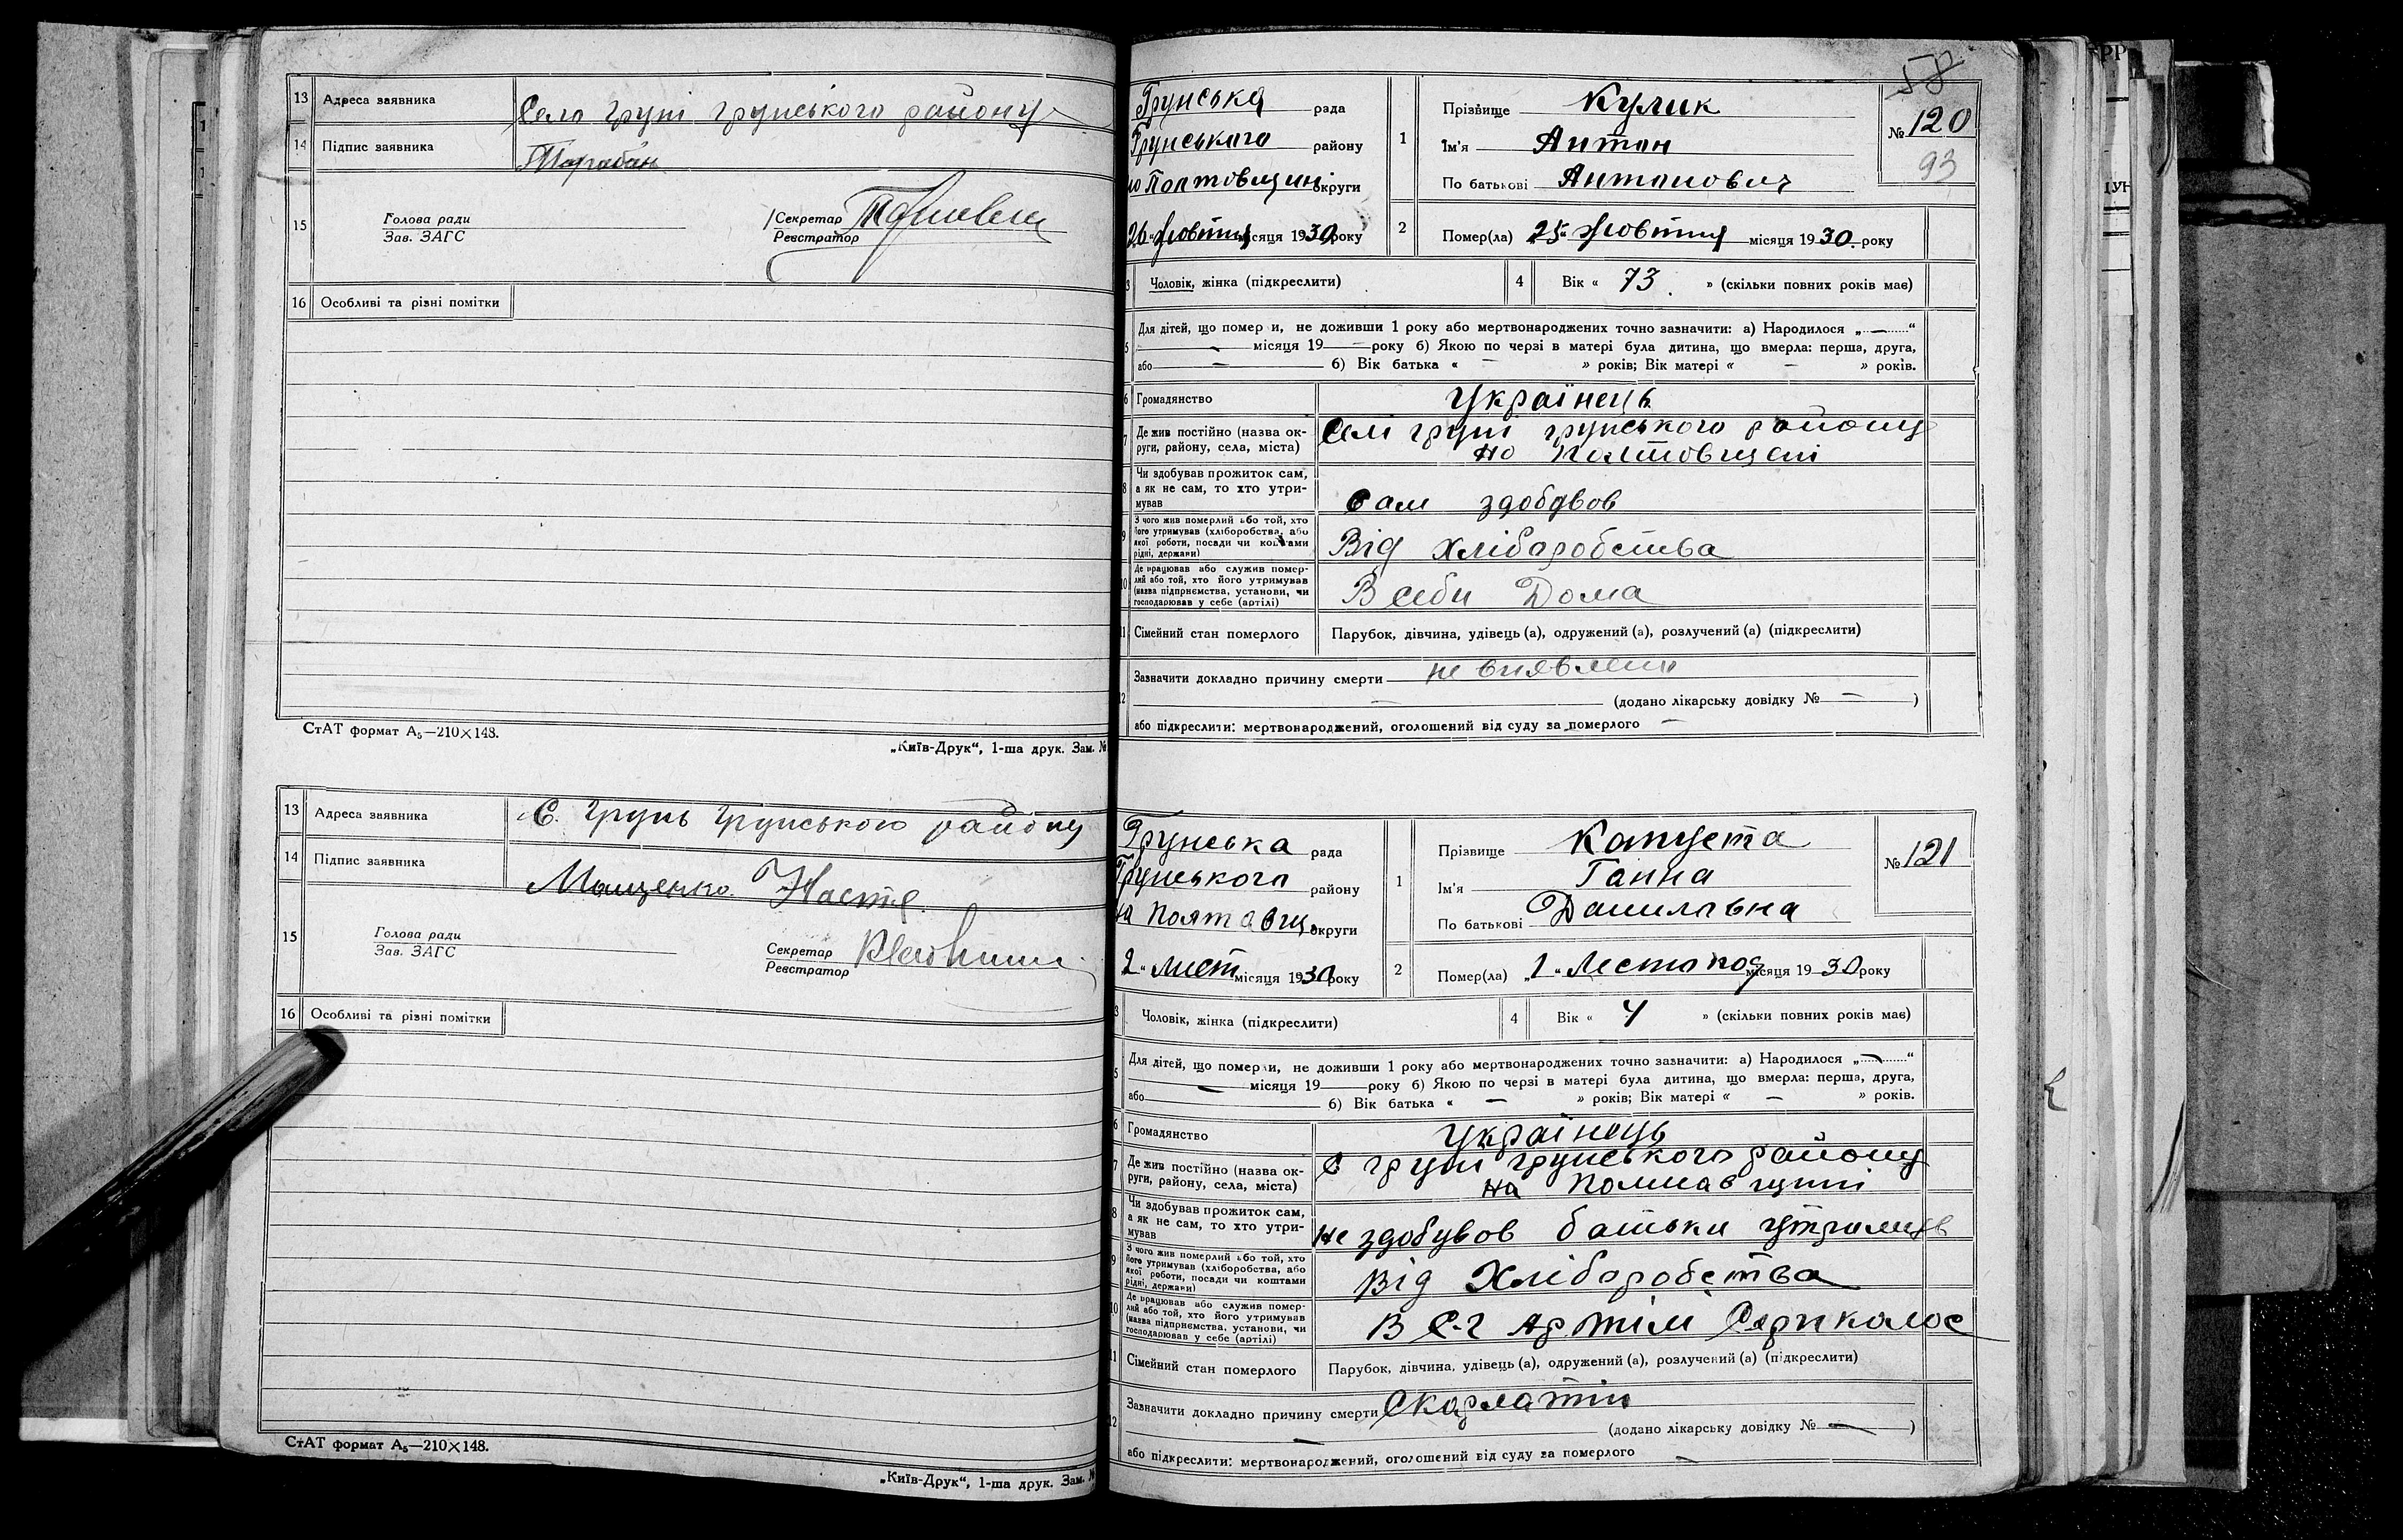 13 Адреса заявника Село Груні грунського району
14 Підпис заявника Тарабан
15 Голова ради
Зав. ЗАГС
Секретар
Реєстратор
16 Особливі та різні помітки
СтАТ формат А₅—210×148.
„Київ-Друк“, 1-ша друк. Зам. №
13 Адреса заявника С. Грунь Грунського району
14 Підпис заявника Мащенко Настя.
15 Голова ради
Зав. ЗАГС
Секретар
Реєстратор
16 Особливі та різні помітки
СтАТ формат А₅—210×148.
„Київ-Друк“, 1-ша друк. Зам. №
58
Грунська рада
Грунського району
по Полтовщині округи
26 „Жовтня місяця 1930 року
1 Прізвище Кулик
Ім'я Антон
По батькові Антонович
№ 120
93
2 Помер(ла) 25 „ Жовтня місяця 1930. року
3 Чоловік, жінка (підкреслити)
4 Вік « 73 » (скільки повних років має)
5 Для дітей, що померли, не доживши 1 року або мертвонароджених точно зазначити: а) Народилося „ — “
— місяця 19 — року б) Якою по черзі в матері була дитина, що вмерла: перша, друга,
або — б) Вік батька « — » років; Вік матері « — » років.
6 Громадянство Українець
7 Де жив постійно (назва ок-
руги, району, села, міста) Селі груні грунського району
но Полтовщені
8 Чи здобував прожиток сам,
а як не сам, то хто утри-
мував Сам здобувов
9 З чого жив померлий або той, хто
його утримував (хліборобства, або
якої роботи, посади чи коштами
рідні, держави) Від хліборобства
10 Де працював або служив помер-
лий або той, хто його утримував
(назва підприємства, установи, чи
господарював у себе (артілі) В себи Дома
11 Сімейний стан померлого Парубок, дівчина, удівець (а), одружений (а), розлучений (а) (підкреслити)
12 Зазначити докладно причину смерти не виявлени
— (додано лікарську довідку № — )
або підкреслити: мертвонароджений, оголошений від суду за померлого —
Грунська рада
Грунького району
на Полтавщ. округи
2 „ Лист місяця 1930 року
1 Прізвище Капуста
Ім'я Ганна
По батькові Данилавна
№ 121
2 Помер(ла) „1 „ Лестопод місяця 1930 року
3 Чоловік, жінка (підкреслити)
4 Вік « 4 » (скільки повних років має)
5 Для дітей, що померли, не доживши 1 року або мертвонароджених точно зазначити: а) Народилося „ — “
— місяця 19 — року б) Якою по черзі в матері була дитина, що вмерла: перша, друга,
або — б) Вік батька « — » років; Вік матері « — » років.
6 Громадянство Українець
7 Де жив постійно (назва ок-
руги, району, села, міста) С груні грунського району
на Полтавщині
8 Чи здобував прожиток сам,
а як не сам, то хто утри-
мував не здобувов батьки утримув
9 З чого жив померлий або той, хто
його утримував (хліборобства, або
якої роботи, посади чи коштами
рідні, держави) Від Хліборобства
10 Де працював або служив помер-
лий або той, хто його утримував
(назва підприємства, установи, чи
господарював у себе (артілі) В С-г Артілі
11 Сімейний стан померлого Парубок, дівчина, удівець (а), одружений (а), розлучений (а) (підкреслити)
12 Зазначити докладно причину смерти Скарлатін
— (додано лікарську довідку № — )
або підкреслити: мертвонароджений, оголошений від суду за померлого —